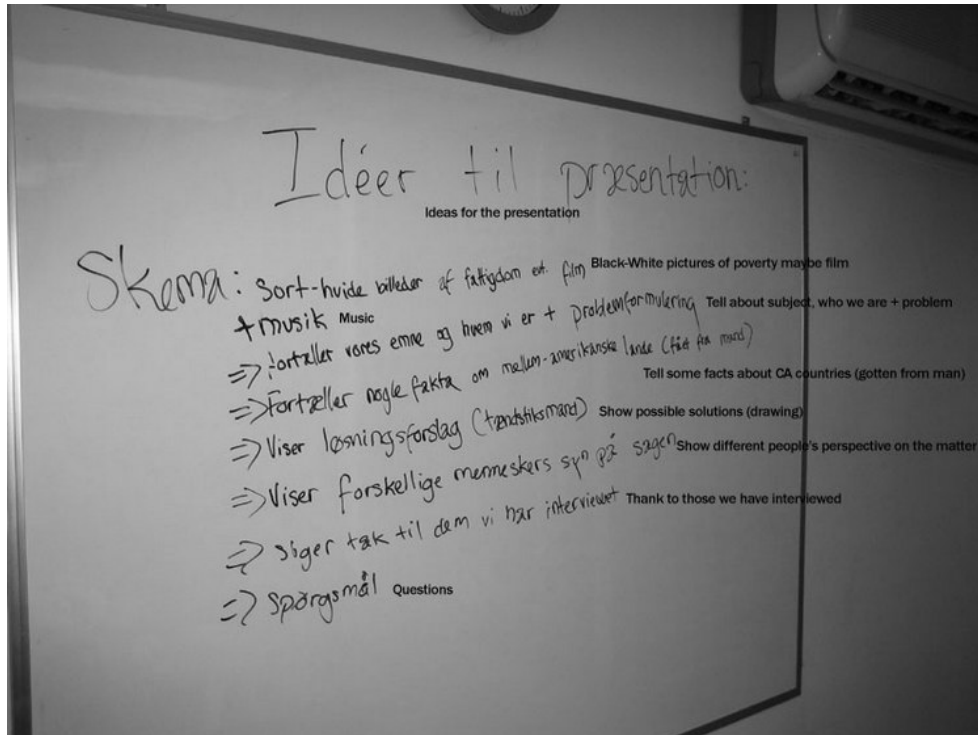 Idéer til præsentation:
Ideas for the presentation
Skema: sort-hvide billeder af fattigdom evt. film Black-White pictures of poverty maybe film
+ musik Music
=> Fortæller vores emne og hvem vi er + problemformulering Tell about subject, who we are + problem
=> Fortæller nogle fakta om mellem-amerikanske lande (fået fra mand)
Tell some facts about CA countries (gotten from man)
=> Viser løsningsforslag (tændstiksmand) Show possible solutions (drawing)
=> Viser forskellige menneskers syn på sagen Show different people's perspective on the matter
=> Siger tak til dem vi har interviewet Thank to those we have interviewed
=> Spørgsmål Questions